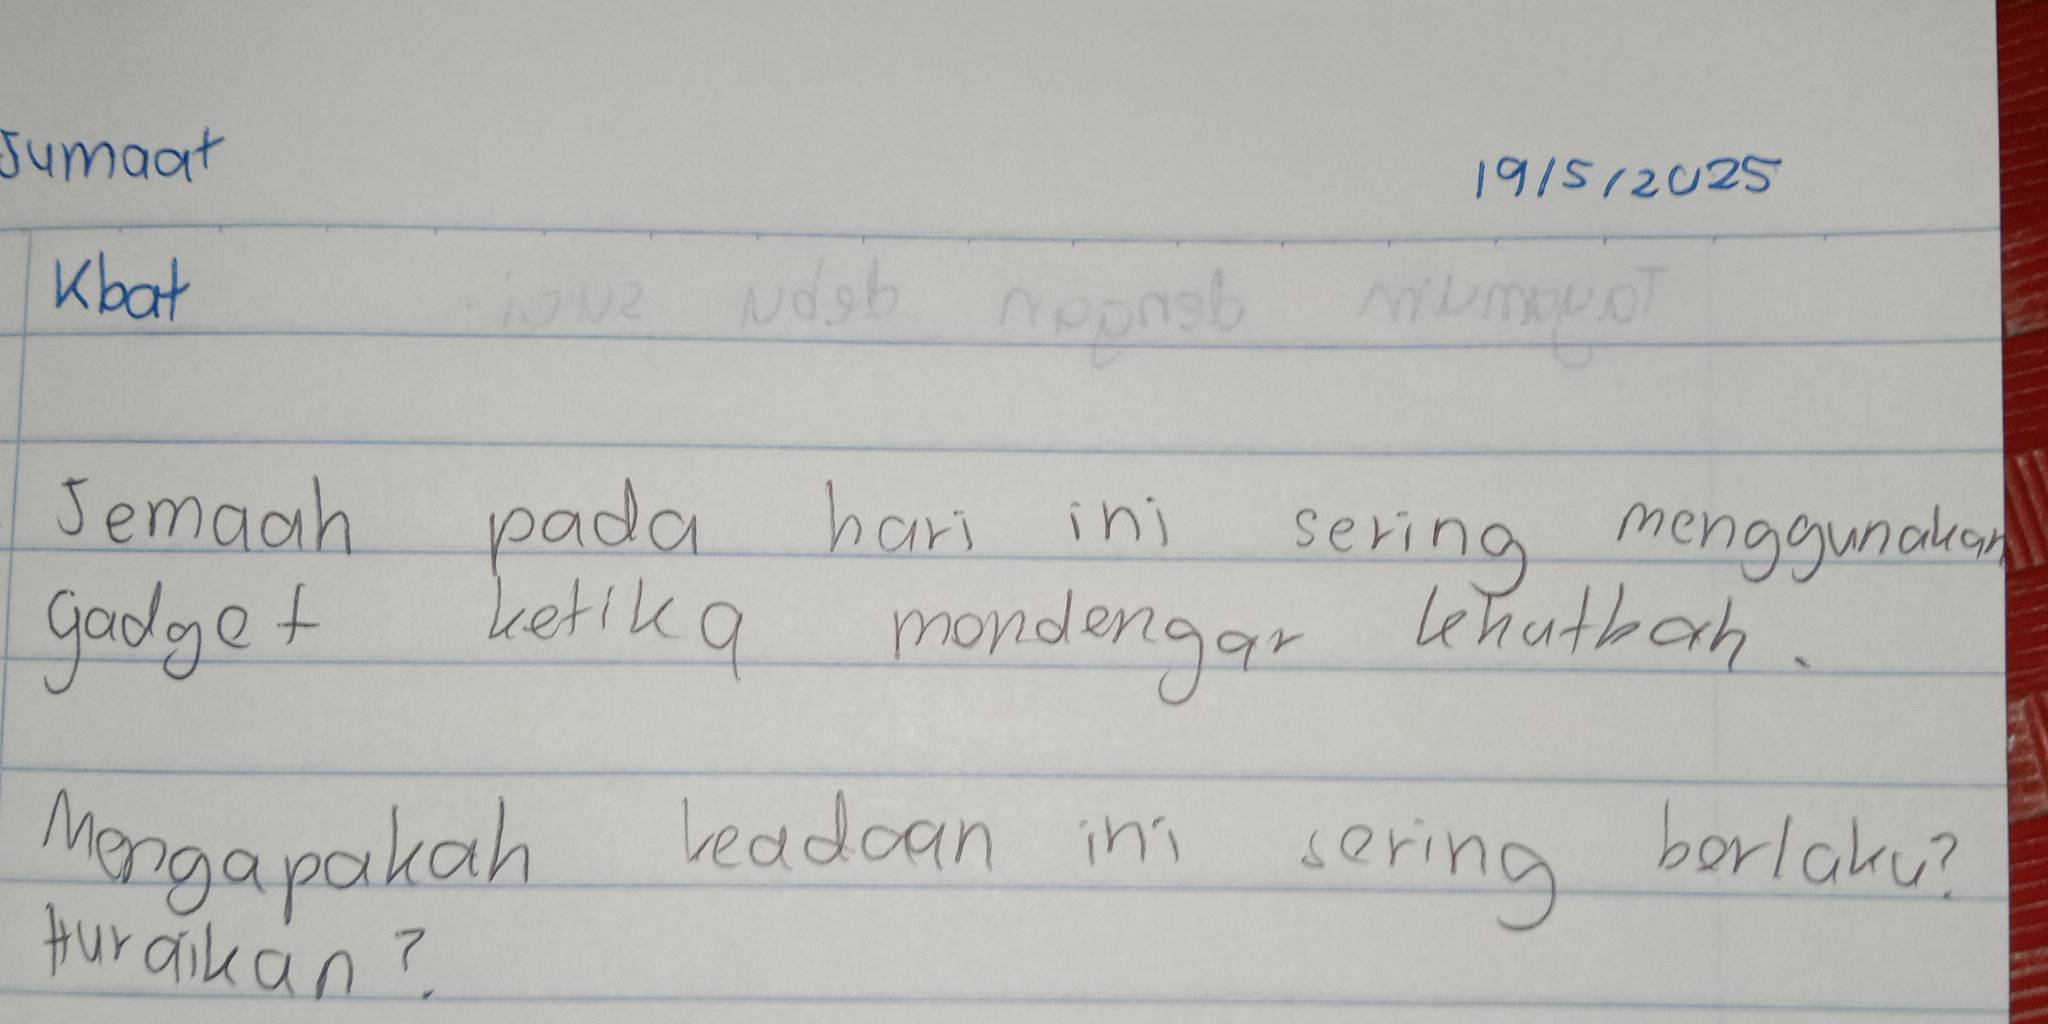 Jumaat 19/5/2025
Kbat
Tayamum dengan debu suci.
Jemaah pada hari ini sering menggunakan
gadget ketika mendengar khutbah.
Mengapakah keadaan ini sering berlaku?
Huraikan?